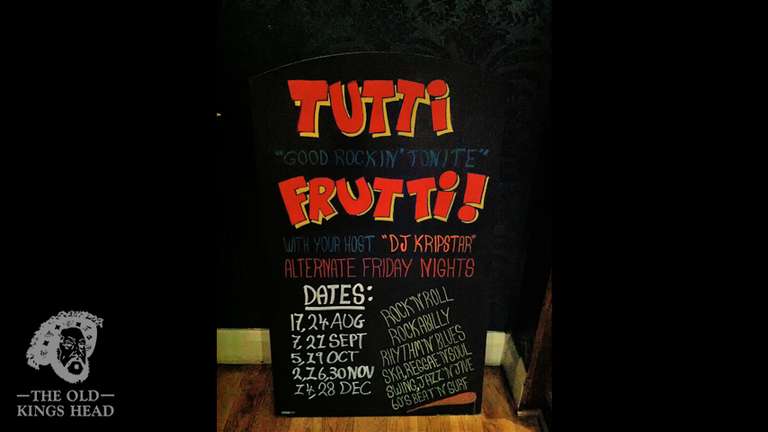 TUTTI
"GOOD ROCKIN' TONITE"
FRUTTI!
WITH YOUR HOST "DJ KRIPSTAR"
ALTERNATE FRIDAY NIGHTS
DATES:
17, 24 AUG
7, 21 SEPT
5, 19 OCT
2, 16, 30 NOV
14, 28 DEC
ROCK'N'ROLL
ROCKABILLY
RHYTHM'N'BLUES
SKA, REGGAE'N'SOUL
SWING, JAZZ'N'JIVE
60'S BEAT'N'SURF
THE OLD
KINGS HEAD